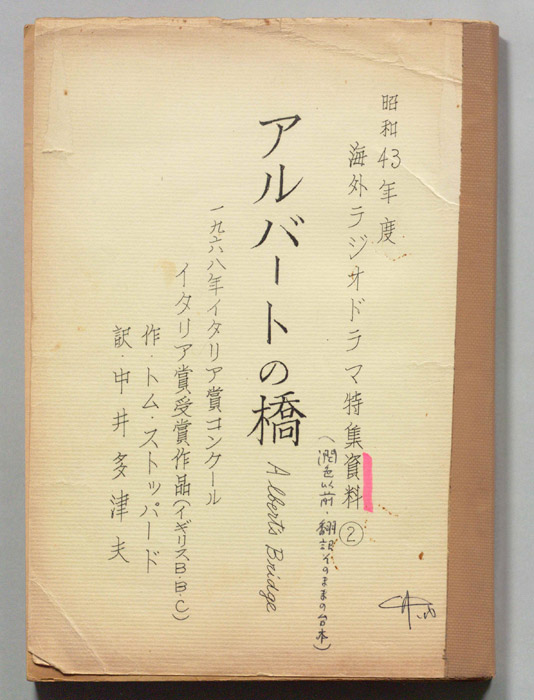 昭和43年度
海外ラジオドラマ特集資料②
(潤色以前・翻訳そのままの台本)
アルバートの橋
Albert's Bridge
一九六八年イタリア賞コンクール
イタリア賞受賞作品(イギリスB・B・C)
作・トム・ストッパード
訳・中井多津夫